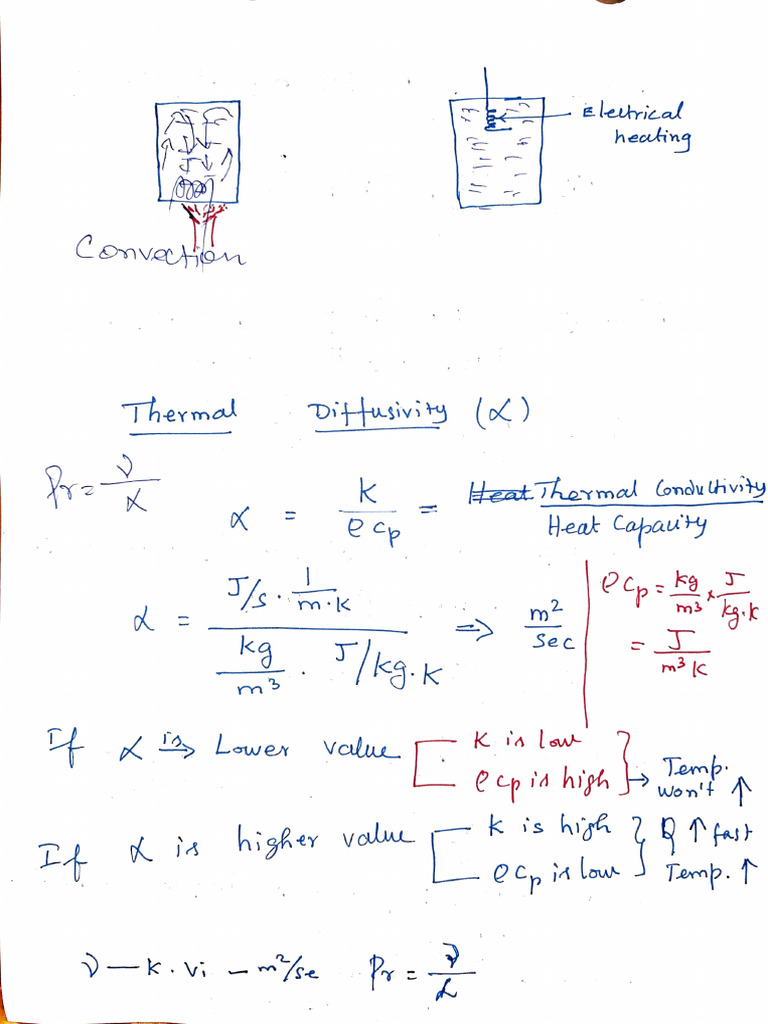 Electrical
heating
Convection
Thermal Diffusivity (α)
Pr = ν/α
α = K/ρCp = ~~Heat~~ Thermal Conductivity/Heat Capacity
α = (J/s · 1/m·K)/(kg/m³ · J/kg·K) ⇒ m²/sec
ρCp = kg/m³ × J/kg·K
= J/m³K
If α is ⇒ Lower value
K is low
ρCp is high
→ Temp. won't ↑
If α is higher value
K is high
ρCp is low
Q ↑ fast
Temp. ↑
ν — K. Vi — m²/se Pr = ν/α